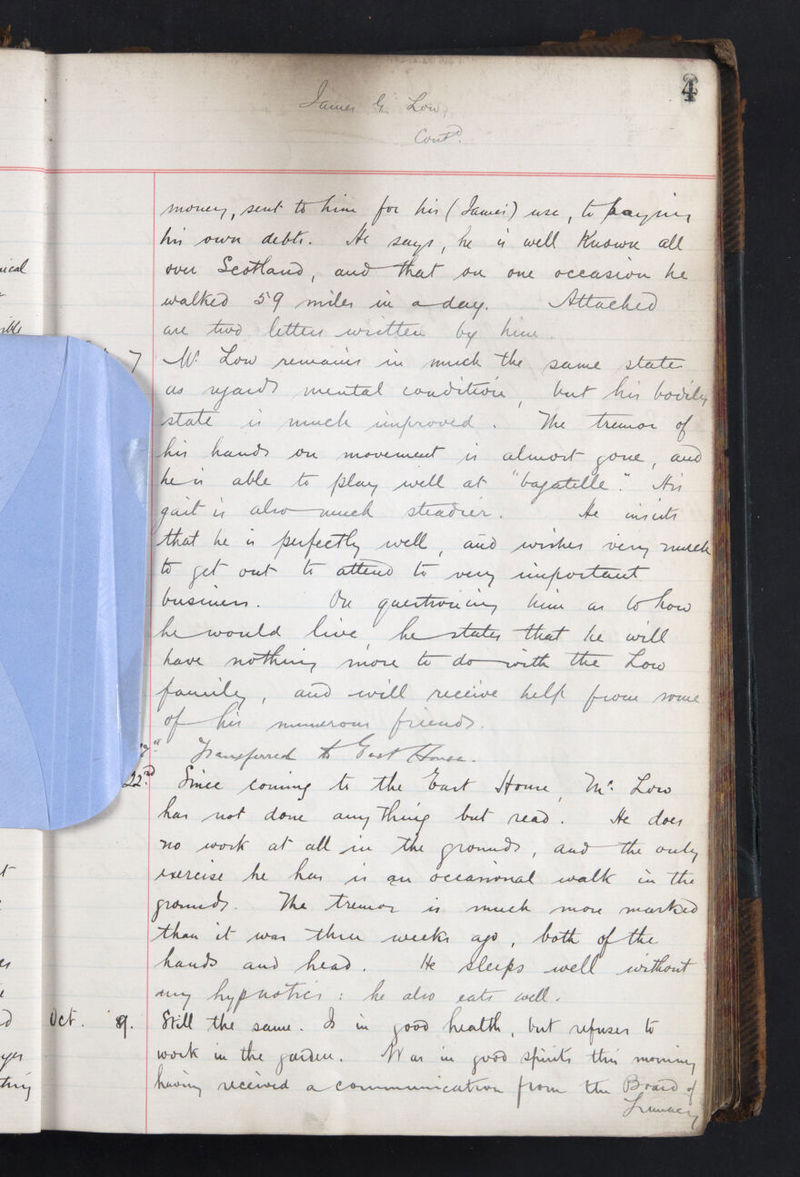 4
James G. Low,
Contd.
money, sent to him for his (James') use, to paying
his own debts. He says, he is well known all
over Scotland, and that on one occasion he
walked 59 miles in a day. Attached
are two letters written by him.
7 Mr. Low remains in much the same state
as regards mental condition, but his bodily
state is much improved. The tremor of
his hands on movement is almost gone, and
he is able to play well at "bagatelle." His
gait is also much steadier. He insists
that he is perfectly well, and wishes very much
to get out to attend to very important
business. On questioning him as to how
he would live he states that he will
have nothing more to do with the Low
family, and will receive help from some
of his numerous friends.
Transferred to East House.
22nd Since coming to the East House, Mr. Low
has not done any thing but read. He does
no work at all in the grounds, and the only
exercise he has is an occasional walk in the
grounds. The tremor is much more marked
than it was three weeks ago, both of the
hands and head. He sleeps well without
any hypnotics: he also eats well.
Oct. 9. Still the same. Is in good health, but refuses to
work in the garden. Was in good spirits this morning
having received a communication from the Board of
Lunacy